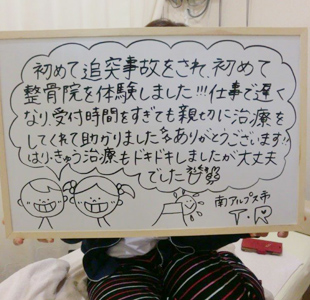 初めて追突事故をされ、初めて
整骨院を体験しました!!!仕事で遅く
なり、受付時間をすぎても親切に治療を
してくれて助かりました ありがとうございます!!
はり・きゅう治療もドキドキしましたが大丈夫
でした
南アルプス市
T・R